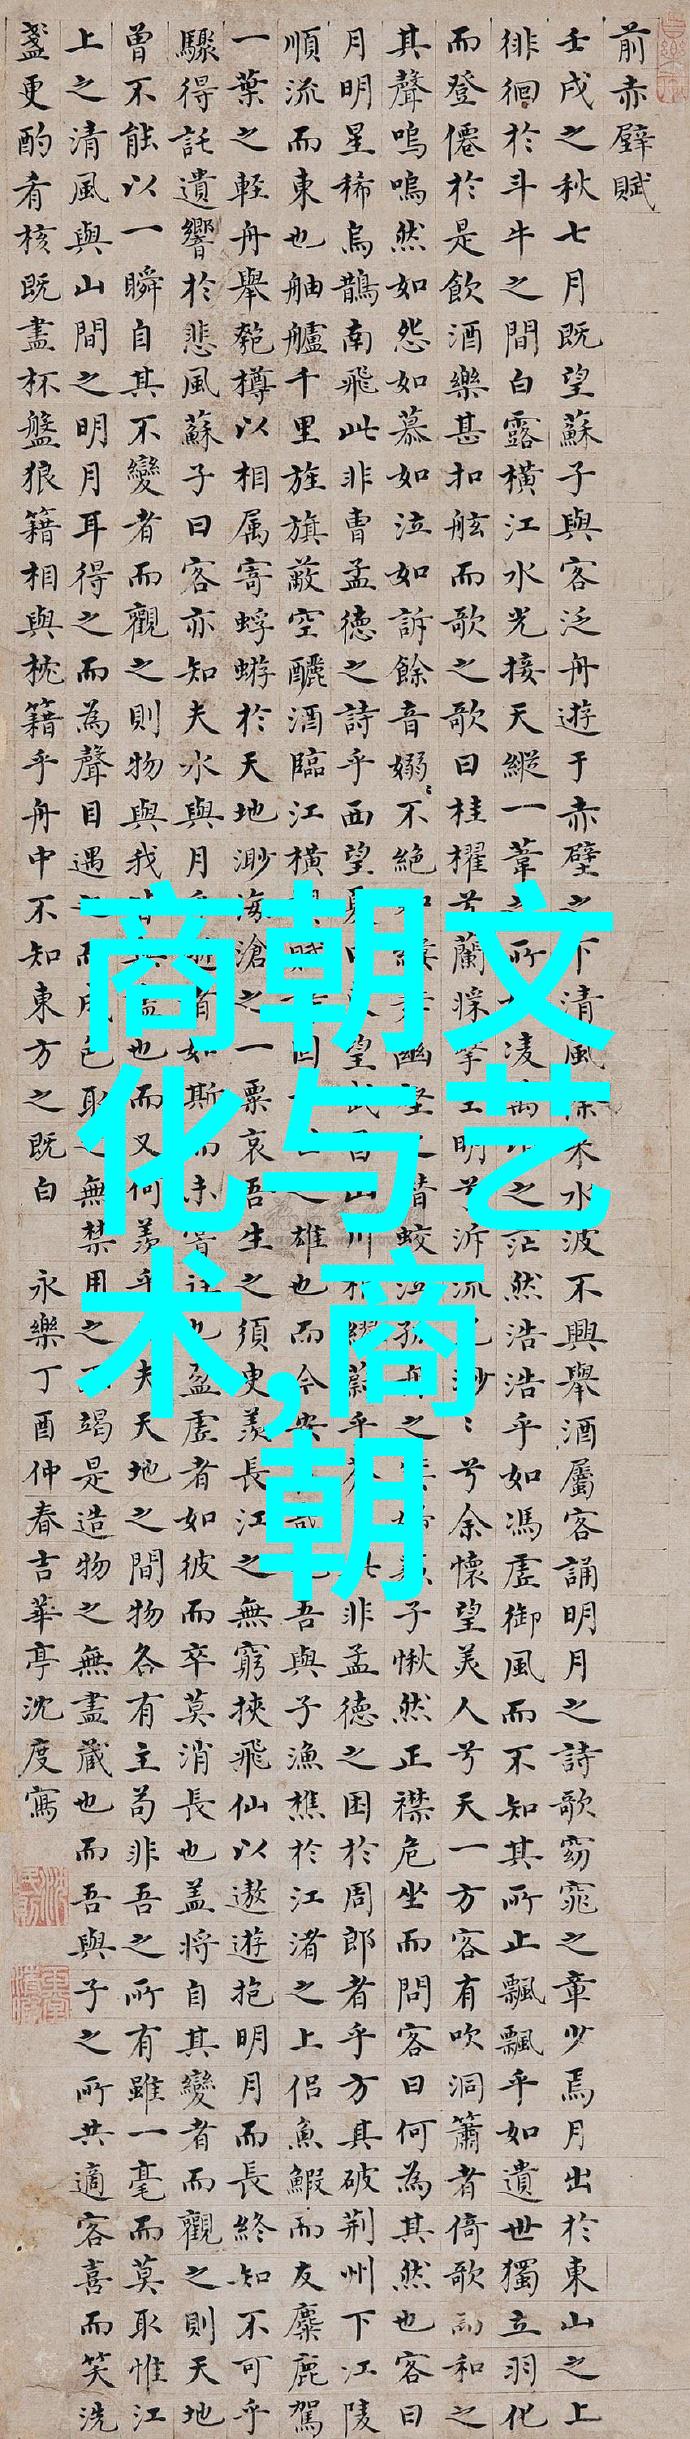 前赤壁賦
壬戌之秋七月既望蘇子與客泛舟遊于赤壁之下清風徐來水波不興舉酒屬客誦明月之詩歌窈窕之章少焉月出於東山之上
徘徊於斗牛之間白露橫江水光接天縱一葦之所凌萬頃之茫然浩浩乎如馮虛御風而不知其所止飄飄乎如遺世獨立羽化
而登僊於是飲酒樂甚扣舷而歌之歌曰桂櫂兮蘭槳擊空明兮泝流光渺〻兮余懷望美人兮天一方客有吹洞簫者倚歌而和之
其聲嗚嗚然如怨如慕如泣如訴餘音嫋〻不絕如縷舞幽壑之潛蛟泣孤舟之嫠婦蘇子愀然正襟危坐而問客曰何為其然也客曰
月明星稀烏鵲南飛此非曹孟德之詩乎西望夏口東望武昌山川相繆鬱乎蒼此非孟德之困於周郎者乎方其破荊州下江陵
順流而東也舳艫千里旌旗蔽空釃酒臨江橫槊賦詩固一世之雄也而今安在哉況吾與子漁樵於江渚之上侶魚鰕而友麋鹿駕
一葉之輕舟舉匏樽以相属寄蜉蝣於天地渺海滄之一粟哀吾生之須臾羨長江之無窮挾飛仙以遨遊抱明月而長終知不可乎
驟得託遺響於悲風蘇子曰客亦知夫水與月乎逝者如斯而未嘗往也盈虛者如彼而卒莫消長也蓋將自其變者而觀之則天地
曾不能以一瞬自其不變者而觀之則物與我皆無盡也而又何羨乎且夫天地之間物各有主苟非吾之所有雖一毫而莫取惟江
上之清風與山間之明月耳得之而為聲目遇之而成色取之無禁用之不竭是造物之無盡藏也而吾與子之所共適客喜而笑洗
盞更酌肴核既盡杯盤狼籍相與枕籍乎舟中不知東方之既白 永樂丁酉仲春吉華亭沈度寫
商朝文
化与艺
术,商
朝